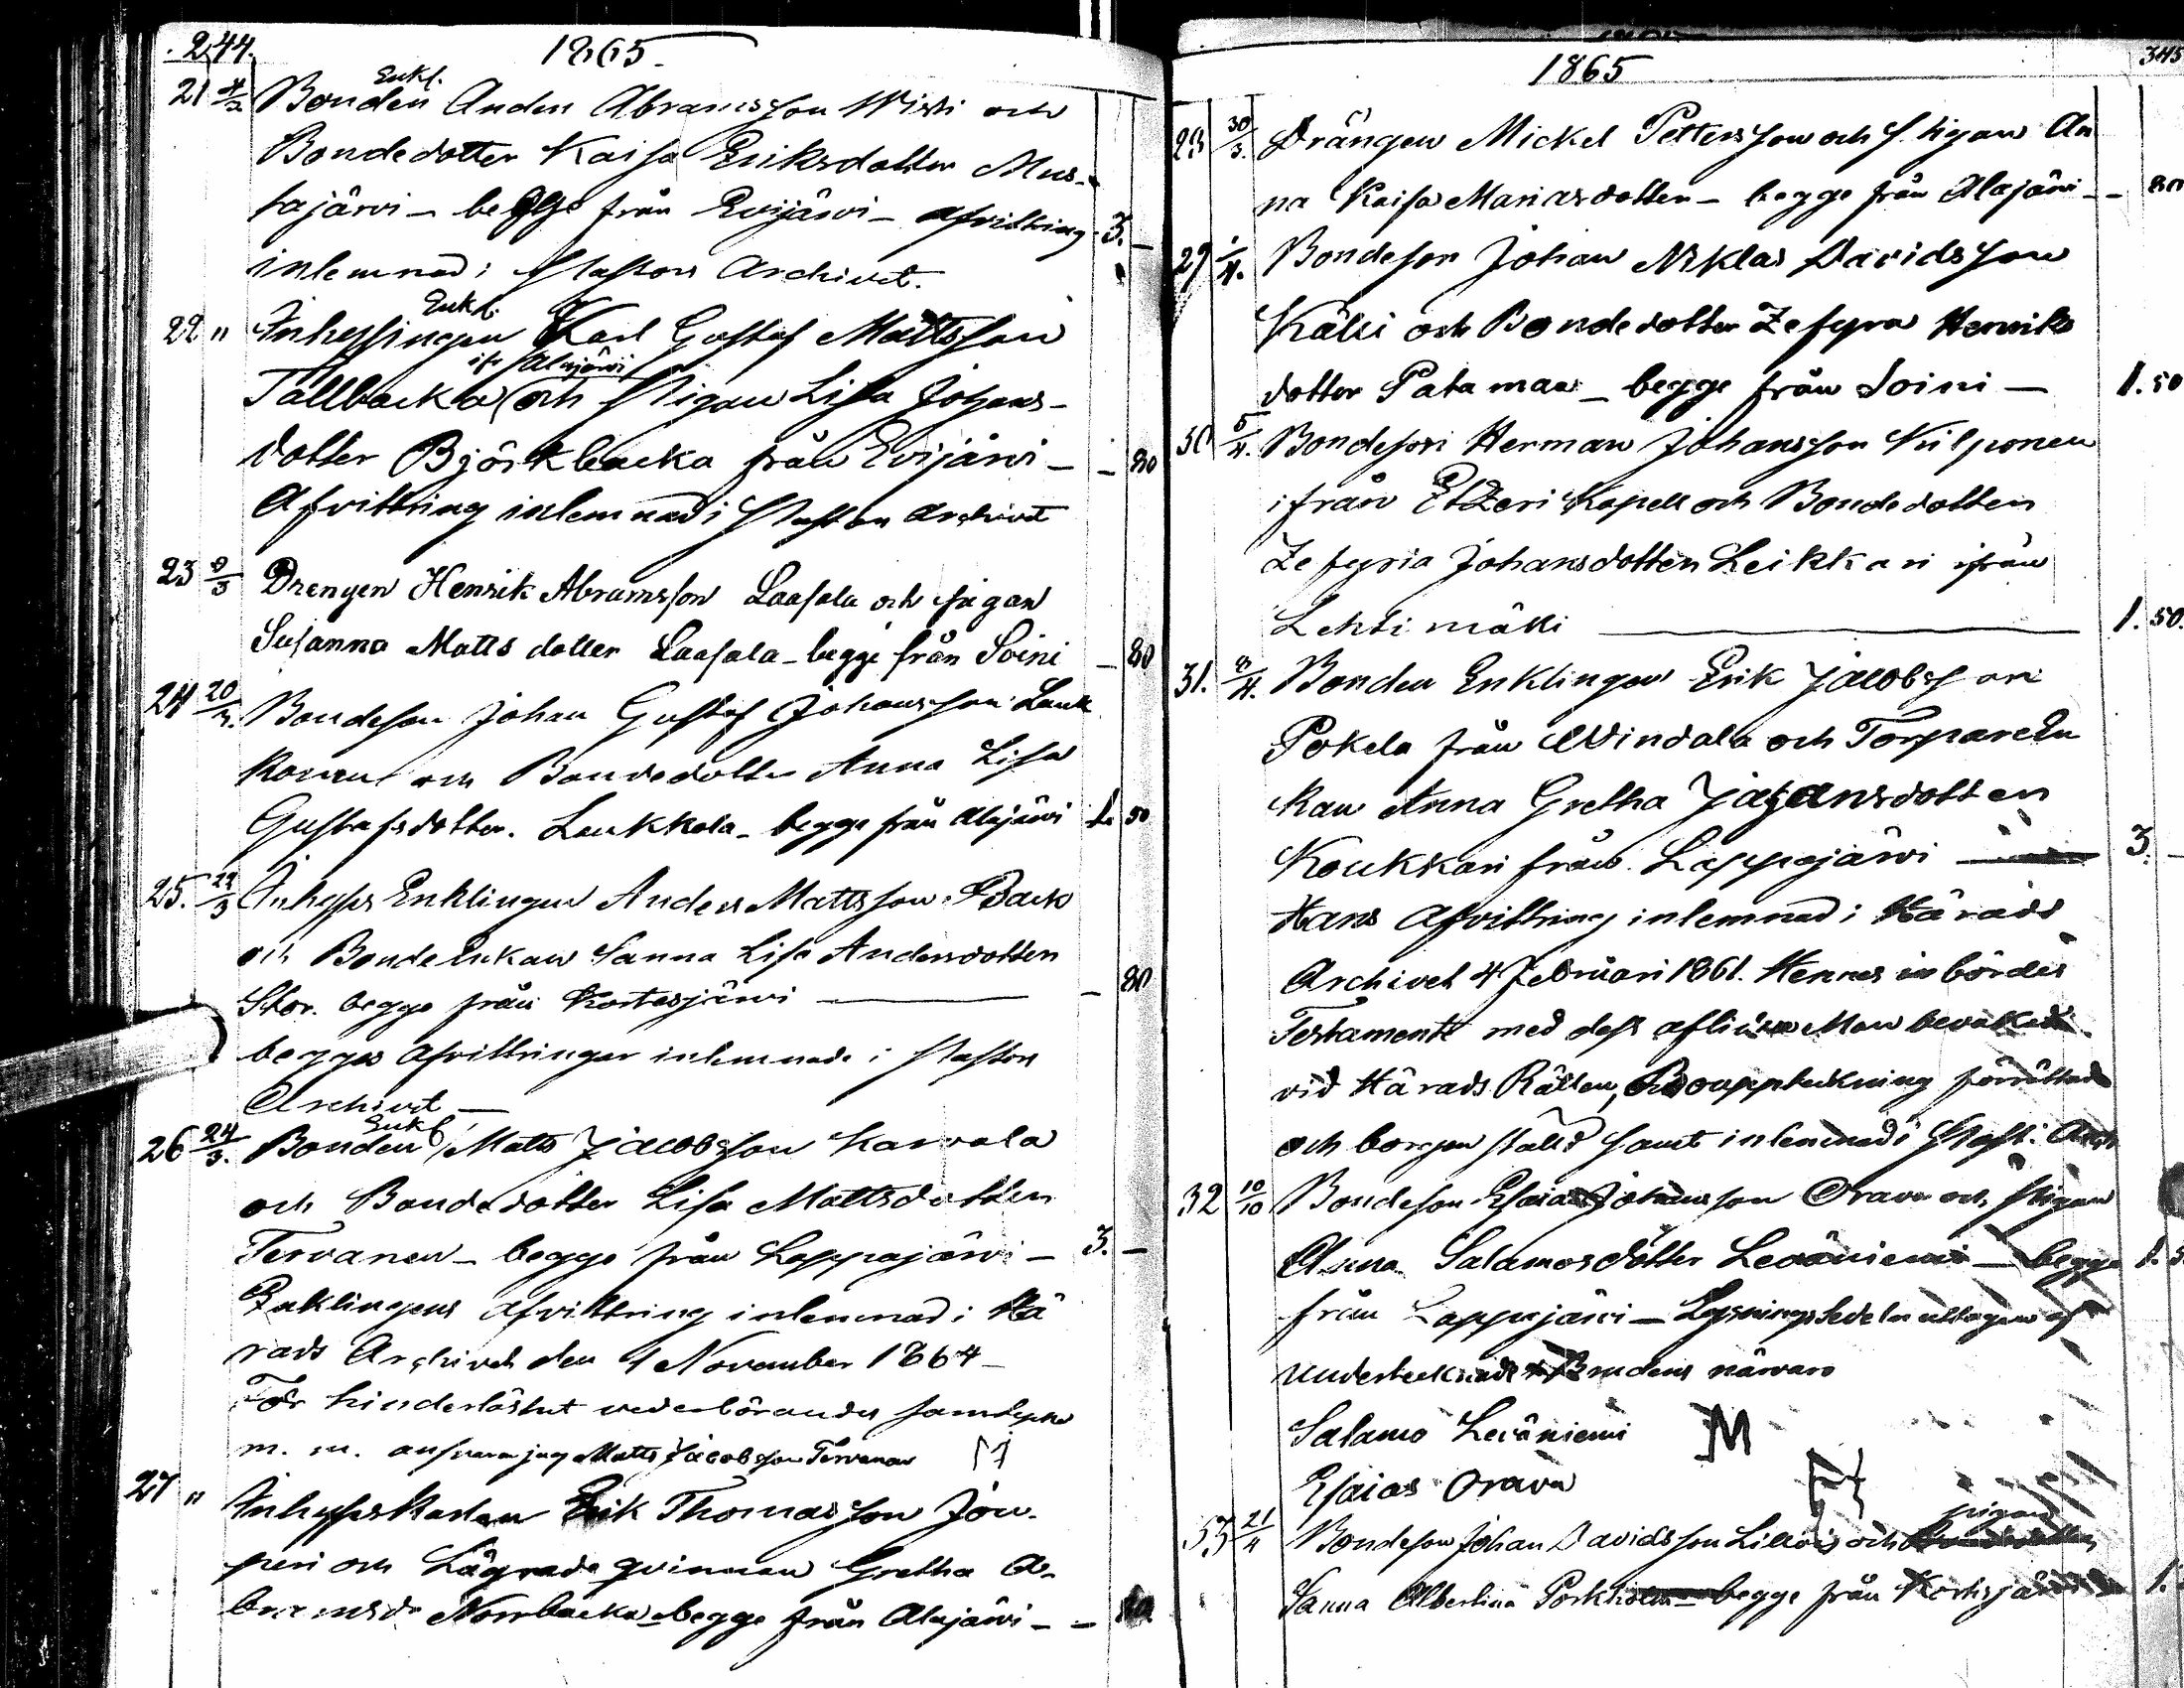 244.
1865
21 4/3 Bonden Enkl. Anders Abramsson Wisti och
Bondedotter Kaisa Eriksdotter Mus-
tajärvi - begge från Evijärvi - afvittring 3. -
inlemnad i Pastors Archivet.
22 " Inhysingen Enkl. Karl Gustaf Mattsson
Tallbacka ifr Alajärvi och Pigan Lisa Johans-
dotter Björkbacka från Evijärvi - - 80
Afvittring inlemnad i Pastors archivet
23 9/3 Drengen Henrik Abramsson Laasala och pigan
Susanna Matts dotter Laasala - begge från Soini - 80
24 20/3. Bondeson Johan Gustaf Johansson Lauk
konen och Bondedotter Anna Lisa
Gustafsdotter. Laukkola - begge från Alajärvi 1. 50
25. 22/3 Inhyses Enklingen Anders Mattsson Back
och Bonde Enkan Sanna Lisa Andersdotter
Stor. begge från Kortesjärvi - 80
begges afvittringar inlemnade i Pastors
Archivet -
26 24/3. Bonden Enkl. Matts Jacobsson Karvala
och Bondedotter Lisa Mattsdotter
Tervanen - begge från Lappajärvi - 3. -
Enklingens afvittring inlemnad i Hä
rads Archivet den 4 November 1864 -
För hinderlöshet vederbörandes samtycke
m. m. ansvarar jag Matts Jacobsson Tervanen
27 " Inhyses Karlen Erik Thomasson Jou-
peri och Lägrade qvinnan Gretha A-
bramsdr Norrbacka - begge från Alajärvi - - 80
1865
345
28 30/3. Drängen Mickel Pettersson och Pigan An
na Kaisa Mariasdotter - begge från Alajärvi - - 80
29 1/4. Bondeson Johan Niklas Davidsson
Kälvi och Bondedotter Zefyra Henriks
dotter Patamaa - begge från Soini - 1. 50
30 5/4. Bondeson Herman Johansson Kilponen
ifrån Etzeri Kapell och Bondedotter
Zefyria Johansdotter Leikkari ifrån
Lehtimäki 1. 50.
31. 8/4. Bonden Enklingen Erik Jacobsson
Pokela från Windala och Torpare En
kan Anna Gretha Johansdotter
Koukkari från Lappajärvi 3. -
Hans afvittring inlemnad i Härads
Archivet 4 Februari 1861. Hennes inbördes
Testamente med dess aflidne Man bevakad
vid Härads Rätten, Bouppteckning förrättad
och borgen ställd samt inlemnad i Past: Arch
32 10/10 Bondeson Esaias Johansson Orava och Pigan
Anna Salamosdotter Leväniemi - begge 1. 5
från Lappajärvi - Lysningssedeln uttagen af
undertecknade i Brudens närvaro
Salamo Leväniemi M
Esaias Orava
33 21/4 Bondeson Johan Davidsson Lillvis och pigan
Sanna Albertina Porkholm - begge från Kortesjärvi 1.